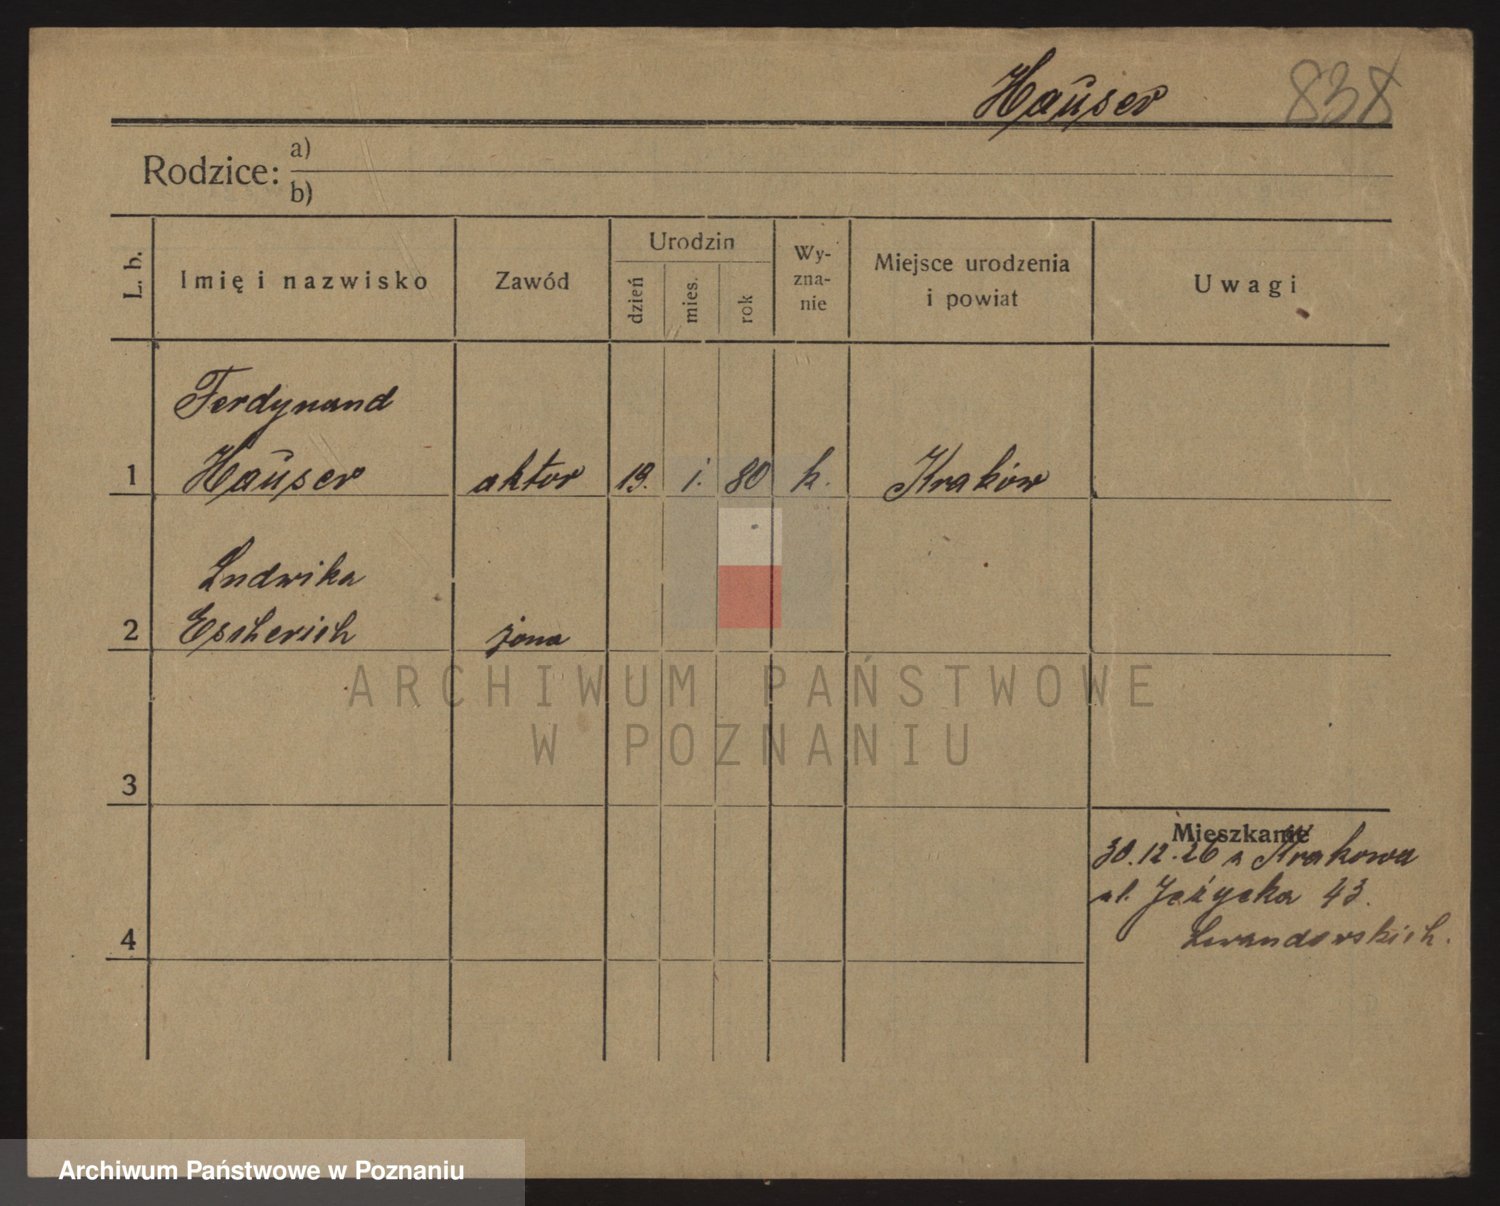 Hauser 838
Rodzice: a)
b)
L. b.
Imię i nazwisko
Zawód
Urodzin
dzień
mies.
rok
Wy-
zna-
nie
Miejsce urodzenia
i powiat
Uwagi
Ferdynand
1 Hauser aktor 19. i. 80 k. Kraków
Ludwika
2 Escherich żona
ARCHIWUM PAŃSTWOWE
W POZNANIU
3
Mieszkanie
30.12.26 z Krakowa
ul. Jeżycka 43.
Lewandowskich.
4
Archiwum Państwowe w Poznaniu